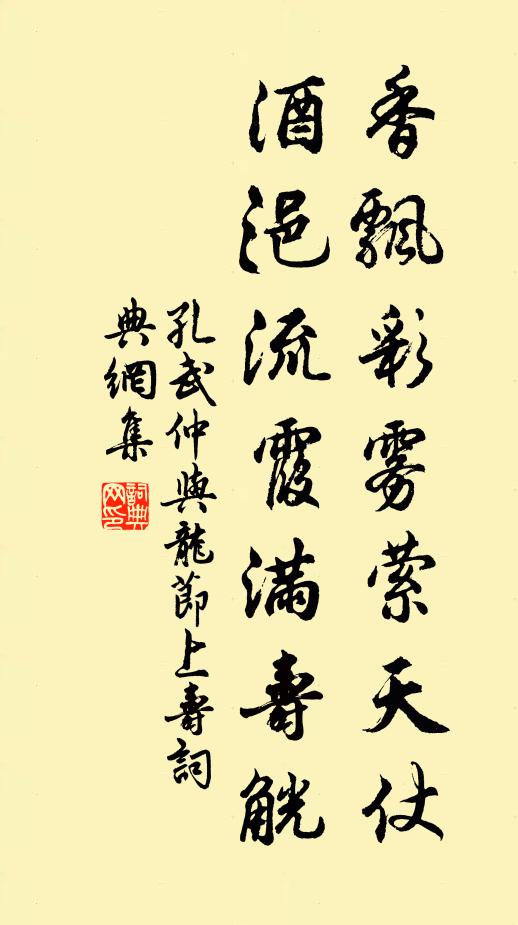 香飄彩雾萦天仗
酒浥流霞滿壽觥
孔武仲與龍節上壽詞
典網集
詞典
网印